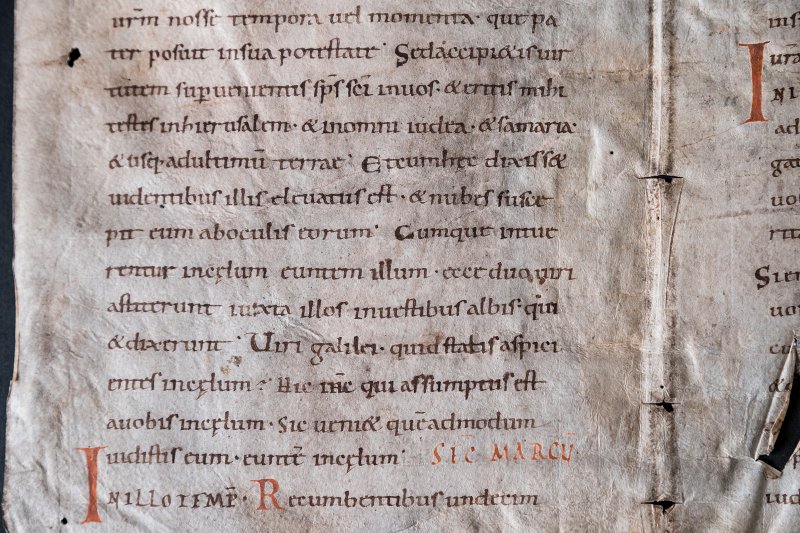 urm̄ nosse tempora uel momenta· que pa
ter posuit insua potestate· Sedaccipi&isuir
tutem superuenientis sp̄s sc̄i inuos· & eritis mihi
testes inhierusalem· & inomni iudea· & samaria·
& usq; adultimū terrae· Etcumhęc dixiss&
uidentibus illis eleuatus est· & nubes susce
pit eum aboculis eorum· Cumque intue
rentur incęlum euntem illum· ecce duo uiri
astiterunt iuxta illos inuestibus albis· q̄ui
& dixerunt· Uiri galilei· quid statis aspici
entes incęlum? Hic ih̄c qui assumptus est
auobis incęlum· Sic ueni& quēadmodum
uidistis eum· euntē incęlum· SIC MARCŪ·
INILLOTEMP̄· Recumbentibus undecim
ins
urā
INI
ad
gal
uo
rita
Sien
uo
cu
&
p
uid